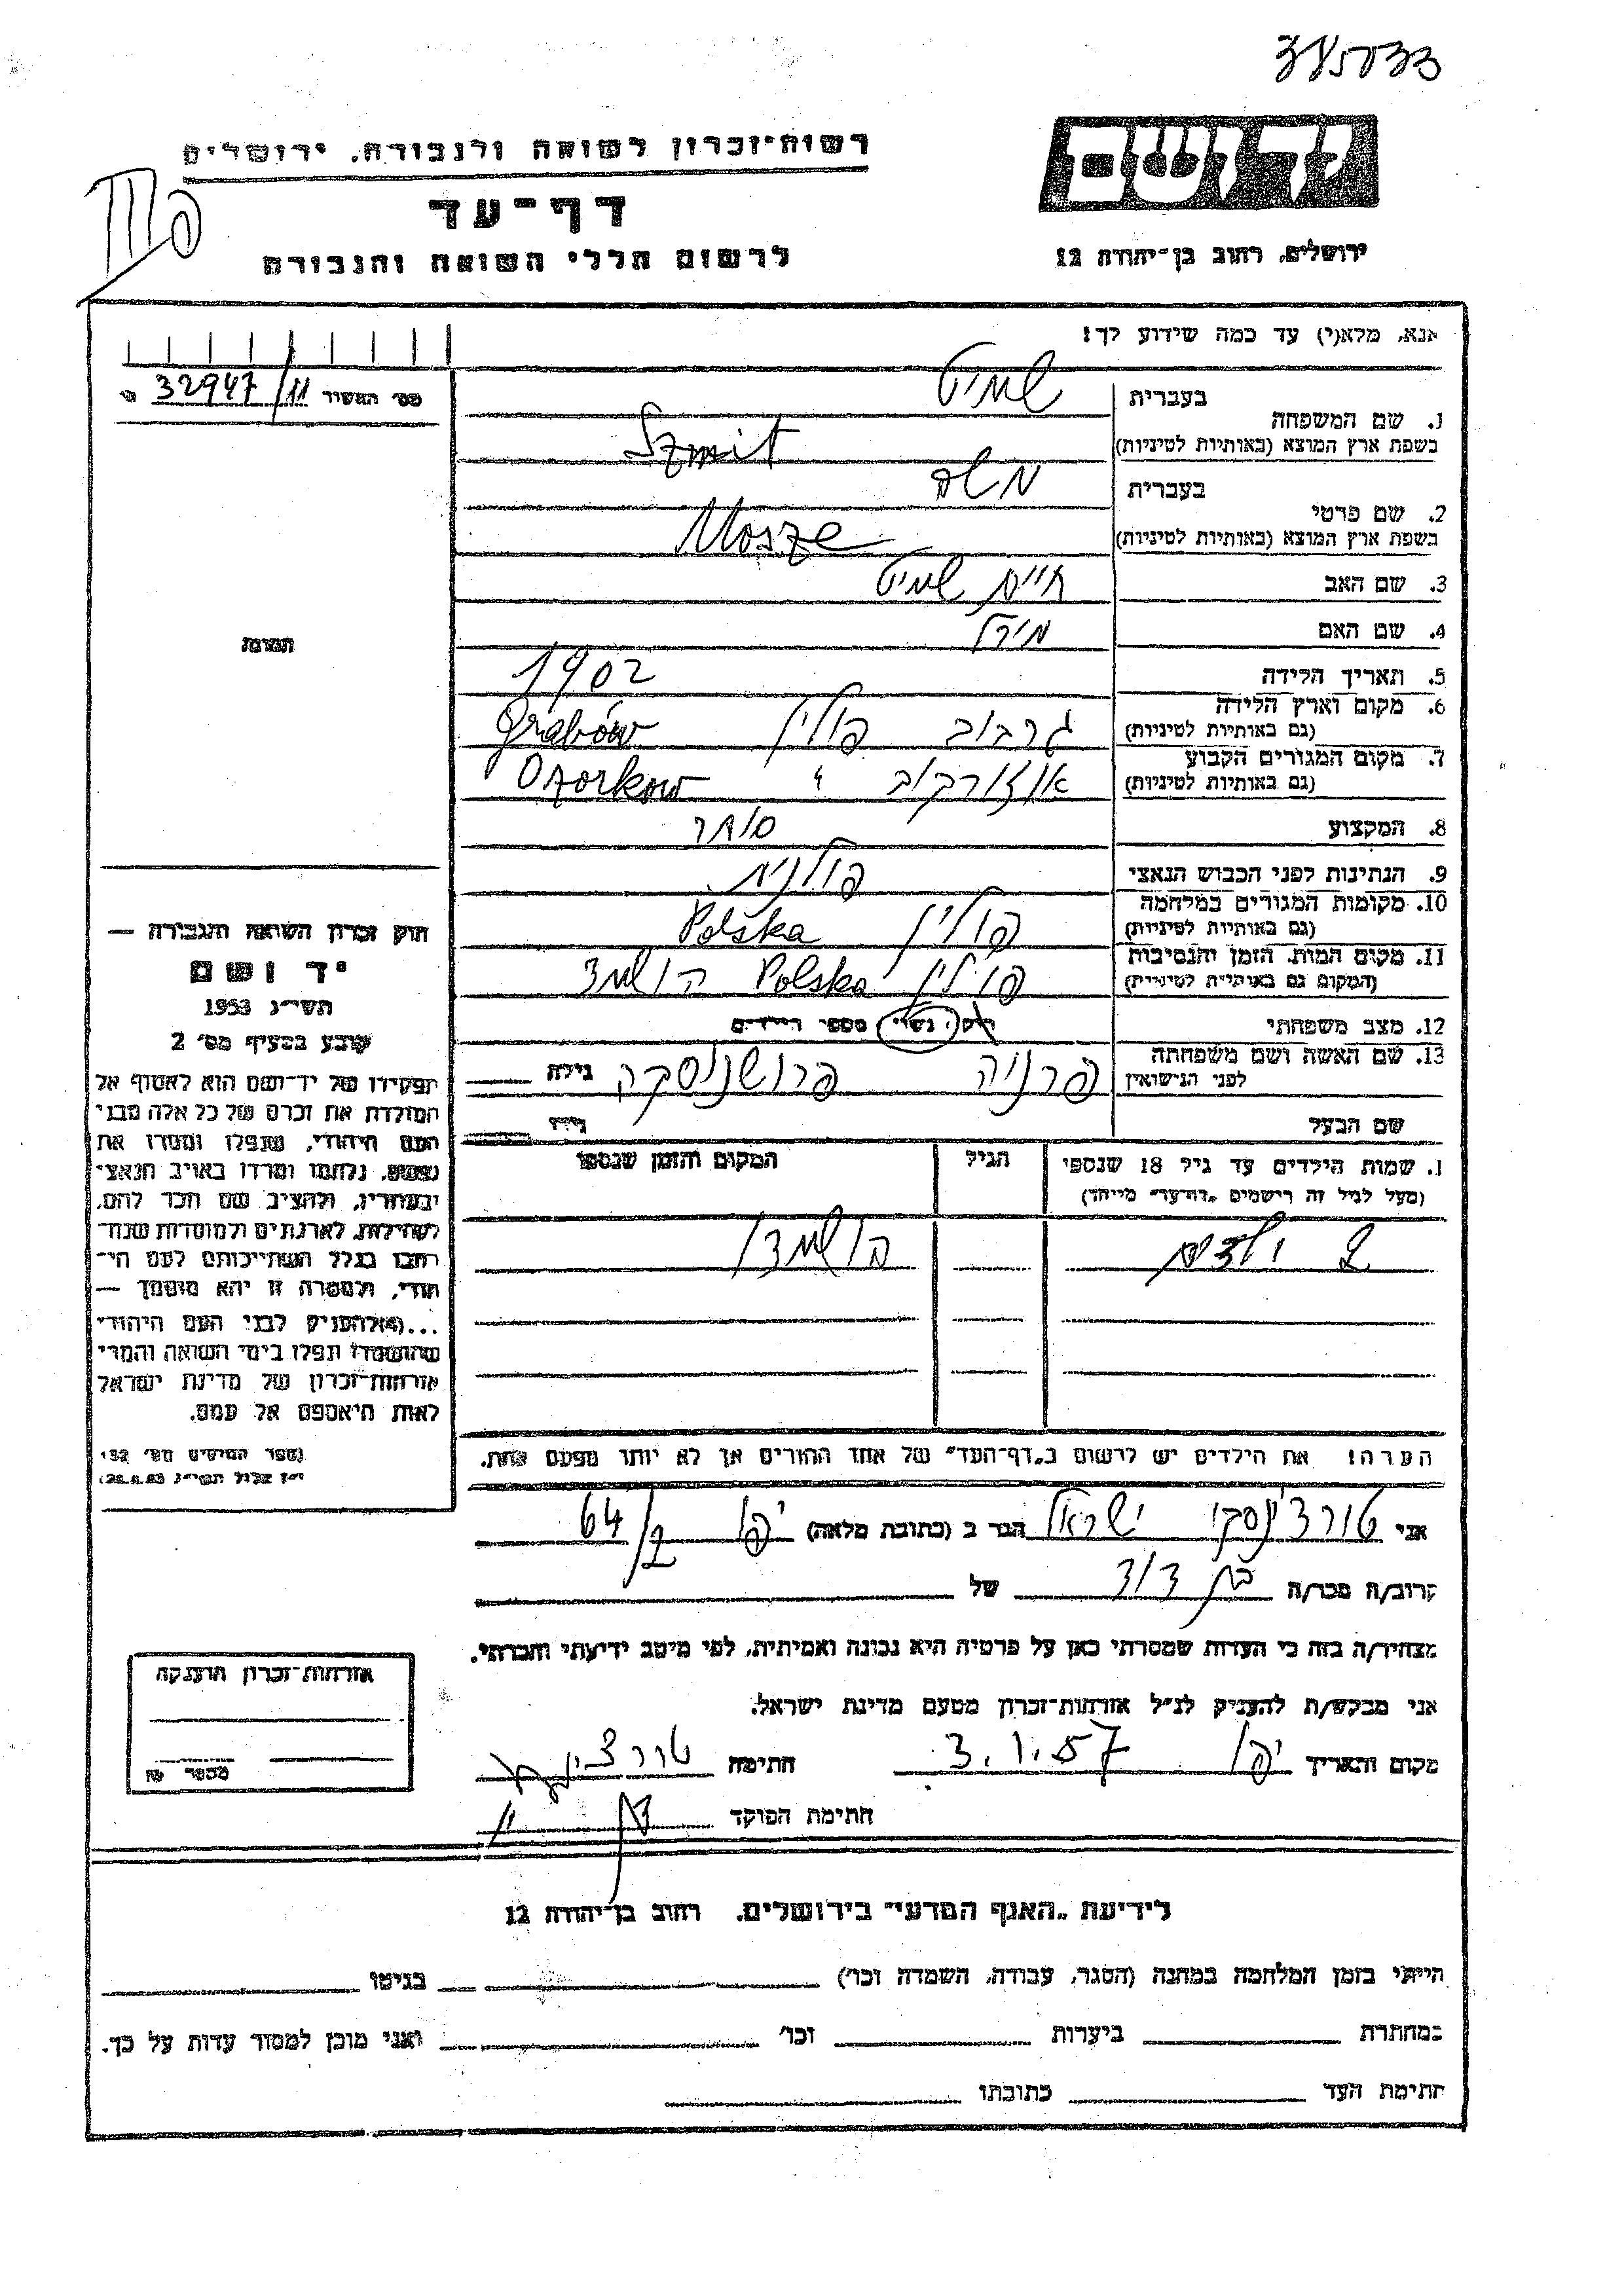 345733
יד ושם
רשות־זכרון לשואה ולגבורה, ירושלים
דף־עד
לרשום חללי השואה והגבורה
ירושלים, רחוב בן־יהודה 12
אנא, מלא(י) עד כמה שידוע לך!
מס' האשיר 32947/11
1. שם המשפחה בעברית שמיט
בשפת ארץ המוצא (באותיות לטיניות) Szmit
2. שם פרטי בעברית משה
בשפת ארץ המוצא (באותיות לטיניות) Mosze
3. שם האב חיים שמיט
4. שם האם מירל
5. תאריך הלידה 1902
6. מקום וארץ הלידה (גם באותיות לטיניות) גרבוב פולין Grabów
7. מקום המגורים הקבוע (גם באותיות לטיניות) אוזורקוב " Ozorkow
8. המקצוע סוחר
9. הנתינות לפני הכבוש הנאצי פולנית
10. מקומות המגורים במלחמה (גם באותיות לטיניות) פולין Polska
11. מקום המות, הזמן והנסיבות (המקום גם באותיות לטיניות) פולין Polska הושמד
12. מצב משפחתי רווק, נשוי מספר הילדים
13. שם האשה ושם משפחתה לפני הנישואין פרניה פרושנוסקה גילה
שם הבעל גילו
תמונה
1. שמות הילדים עד גיל 18 שנספו הגיל המקום והזמן שנספו
(מעל לגיל זה רישמים "דף־עד" מייחד)
2 ילדים הושמדו
חוק זכרון השואה והגבורה —
יד ושם
תשי״ג 1953
קובע בסעיף מס' 2
תפקידו של יד־ושם הוא לאסוף אל
המולדת את זכרם של כל אלה מבני
העם היהודי, שנפלו ומסרו את
נפשם, נלחמו ומרדו באויב הנאצי
ובעוזריו, ולהציב שם וזכר להם,
לקהילות, לארגונים ולמוסדות שנח־
רבו בגלל השתייכותם לעם הי־
הודי, ולמטרה זו יהא מוסמך —
...(4) להעניק לבני העם היהודי
שהושמדו ונפלו בימי השואה והמרי
אזרחות־זכרון של מדינת ישראל
לאות היאספם אל עמם.
(ספר החוקים מס' 132,
י״ז אלול תשי״ג 28.8.53)
הערה! את הילדים יש לרשום ב„דף־העד" של אחד ההורים אך לא יותר מפעם אחת.
אני טורצ'נסקי ישראל הגר ב (כתובת מלאה) יפו 64/2
קרוב/ה מכר/ה בן דוד של
מצהיר/ה בזה כי העדות שמסרתי כאן על פרטיה היא נכונה ואמיתית, לפי מיטב ידיעתי והכרתי.
אני מבקש/ת להעניק לנ״ל אזרחות־זכרון מטעם מדינת ישראל.
מקום ותאריך יפו 3.1.57 חתימה
חתימת הפוקד
אזרחות־זכרון הוענקה
מספר
לידיעת „האגף המדעי" בירושלים, רחוב בן־יהודה 12
הייתי בזמן המלחמה במחנה (הסגר, עבודה, השמדה וכו') בגיטו
במחתרת ביערות וכו' ואני מוכן למסור עדות על כך.
חתימת העד כתובתו